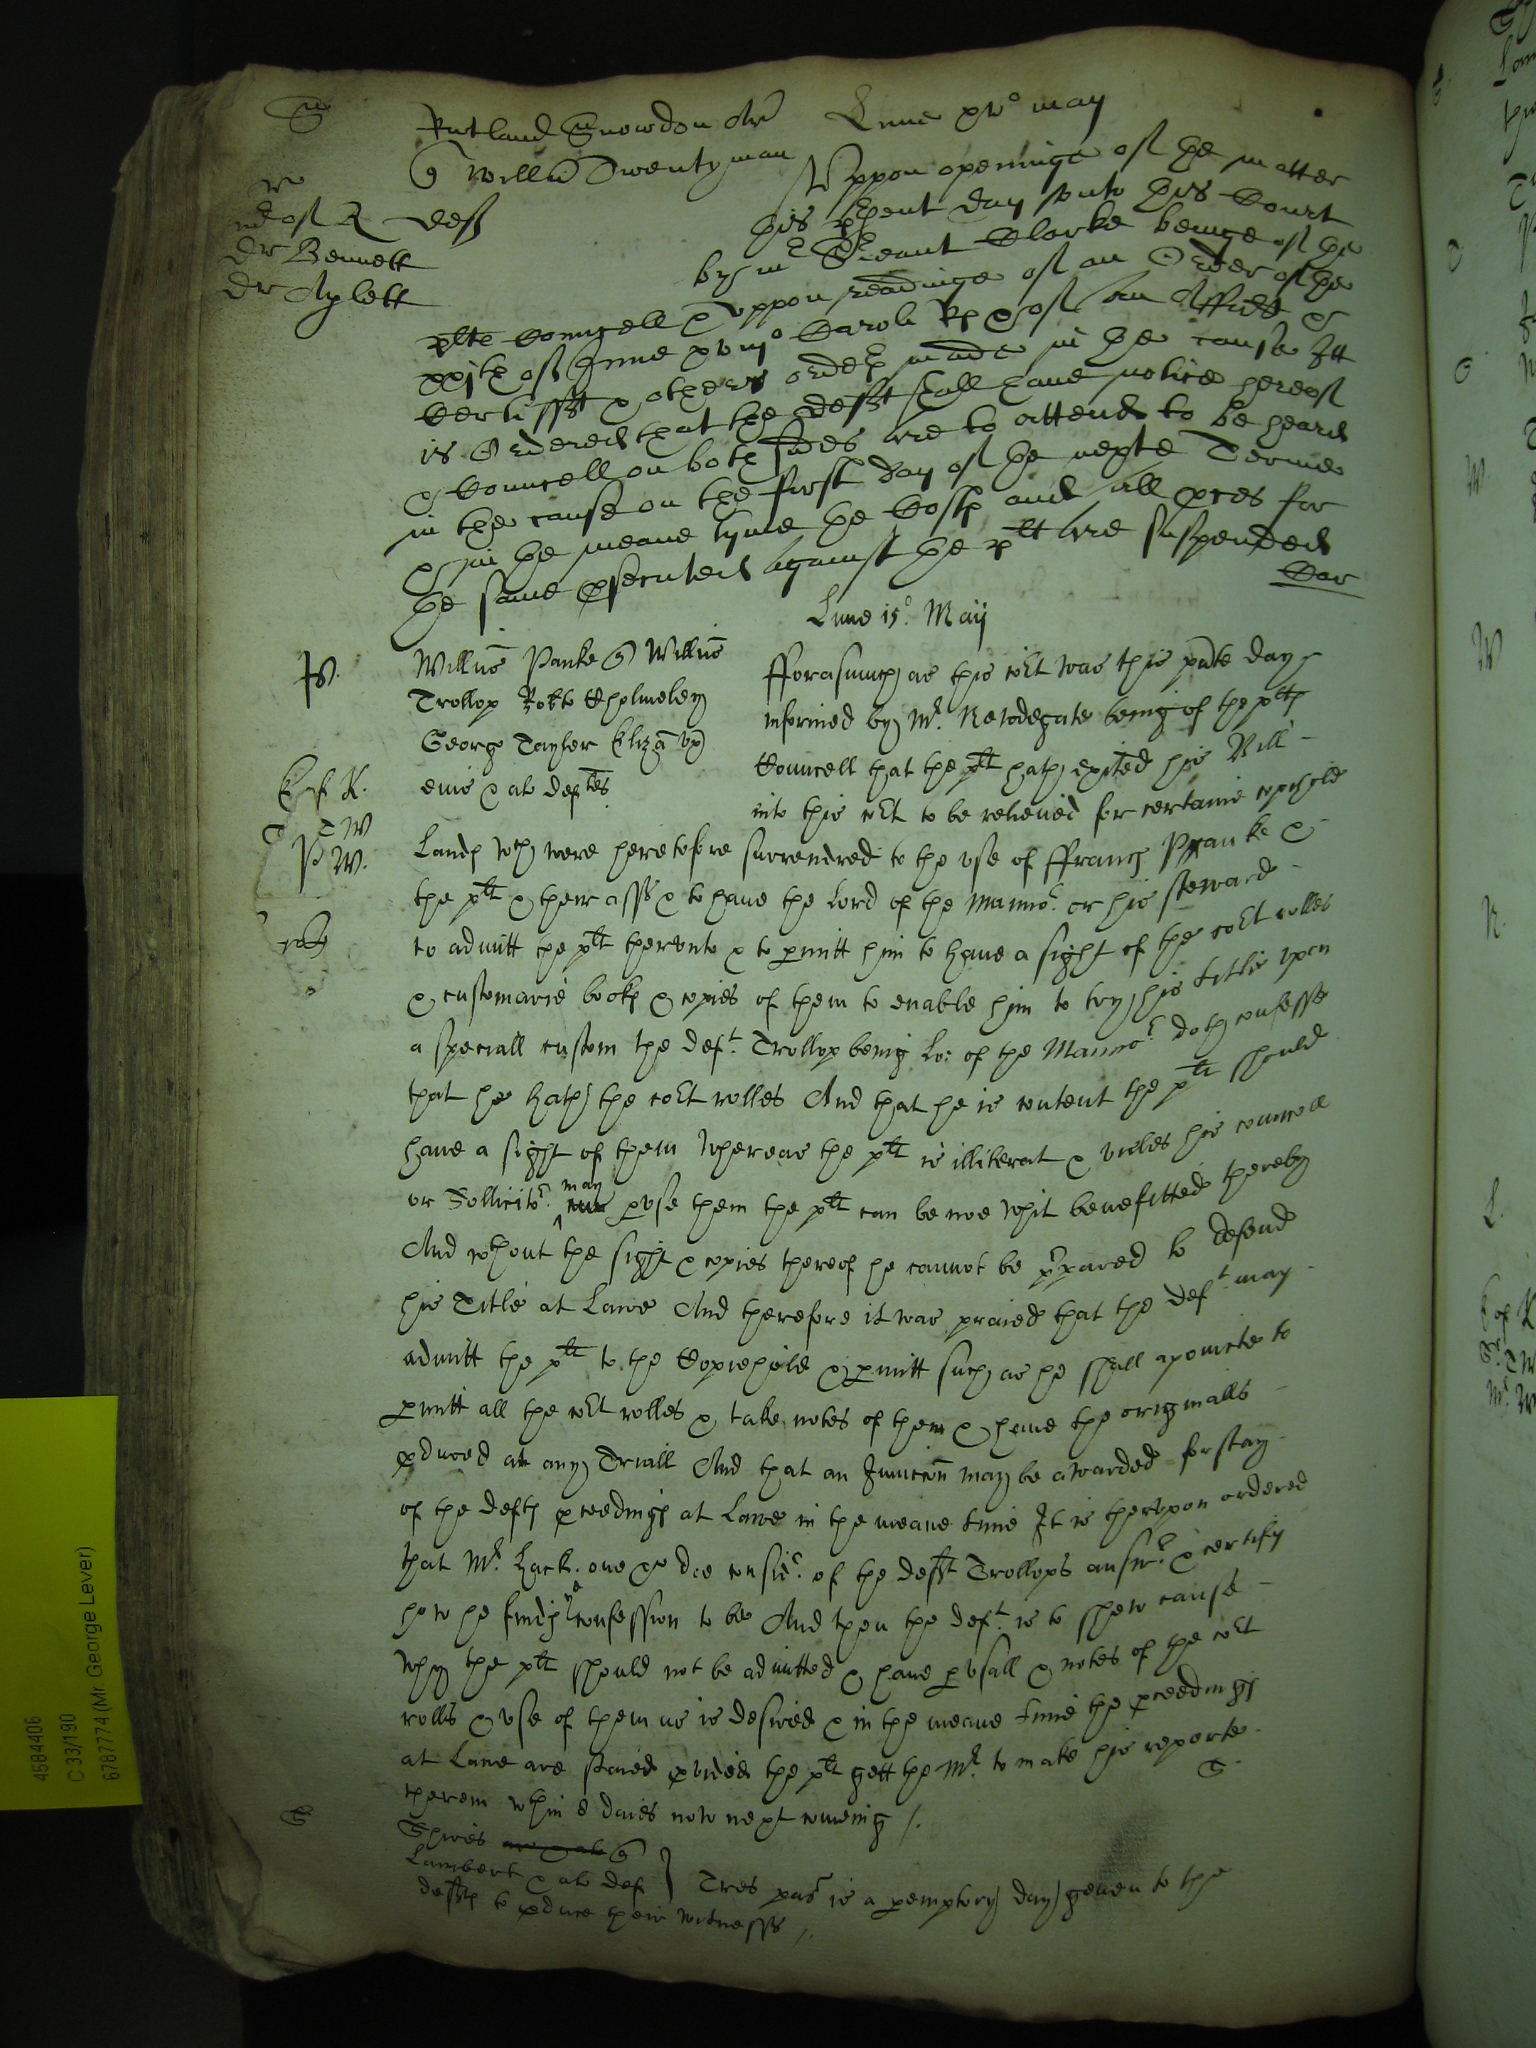 S
Rutland Snowdon Ar Lune xvo may
v Willm Twentyman Uppon openinge of the matter
this present day unto this Court
by mr Serieant Clarke beinge of the
Dr Bennett
Dr Aylett
plts Councell & uppon readinge of an Order of the
xxjth of June xvmo Caroli Rs & of an Affidt &
Certifft & others orders made in the cause Itt
is Ordered that the deft shall have notice hereof
& Councell on both sides are to attend to be heard
in the cause on the first day of the nexte Terme
& in the meane tyme the Costs and all pces for
the same psecuted against the plt are suspended
Lune 15o Maij
P.
Willus Panke v Willus
Trollop Robto Cholmeley
George Tayler Eliza ux
eius & als deftes
fforasmuch as this cort was this pnte day
informed by Mr. Newdegate being of the plts
Councell that the plt hath exited his Bill
into this cort to be releived for certaine copihold
E of K.
T W
P W.
Lands wch were heretofore surrendred to the use of ffrancs Panke &
the plt & their asss & to have the Lord of the Mannor. or his steward
to admitt the plt therunto & to pmitt him to have a sight of the cort rolles
& customarie books & copies of them to enable him to try his title upon
a speciall custom the deft. Trollop being Lo: of the Mannor. doth confesse
that he hath the cort rolles And that he is content the plt should
have a sight of them Whereas the plt is illiterat & unles his councell
or Sollicitor. may puse them the plt can be noe whit benefitted thereby
And wthout the sight & copies thereof he cannot be prpared to defend
his Title at Lawe And therefore it was praied that the deft. may
admitt the plt to the Copiehold & pmitt such as he shall apointe to
pmitt all the cort rolles & take notes of them & have the originalls
pduced at any Triall And that an Iniuncon may be awarded for stay
of the defts pceedings at Lawe in the meane time It is therupon ordered
that Mr. one &c doe considr. of the deft Trollops answr. & certify
how he finds ye confession to be And then the deft. is to shew cause
why the plt should not be admitted & have pusall & notes of the cort
rolls & use of them as is desired & in the meane time the pceedings
at Lawe are staied pvided the plt gett the Mr. to make his reporte
therein wthin 8 daies now next comeing /.
S
S
Lambert & als def } Tres pas is a pemptory day geven to the
defts to pduce their witnesses /.
4584406
C 33/190
6787774 (Mr. George Lever)